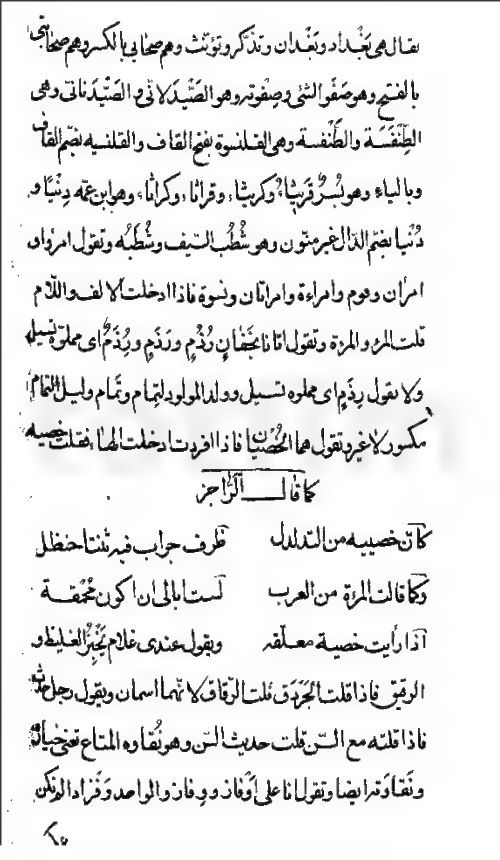 يقال هي بَغْداد وبَغْدان وتذكّر وتؤنّث وهم صحابي بالكسر وهم صحابتي
بالفتح وهو صَفْو الشئ وصِفوته وهو الصَّيْدَلاني والصَّيْدَناني وهي
الطِّنْفَسَة والطَّنْفسة وهي القلنسوة بفتح القاف والقلنسيه بضم القاف
وبالياء وهو بُسْرٌ قَرِيثاءُ وكريثاء وقراثاء وكراثاء وهو ابن عمّه دِنْيًا و
دُنْيا بضم الدال غير منون وهو شُطُب السّيف وشُطَبُه وتقول امرؤ و
امرأن وقوم وامراءة وامراتان ونسوة فاذا ادخلت الالف واللام
قلت المرء والمرءة وتقول اتانا بجَفانٍ رُذُمٍ ورَذَمٍ ورِذَمٌ اى مملوّة تسيل
ولا يقول رِذَمٍ اى مملوه تسيل وولد المولود لتِمام وتَمام وليل التمام
مكسور لا غير وتقول هما الخُصْيان فاذا افردت ادخلت الهاء فقلت خصيه
كما قال الرّاجز
كانّ خصييه من التدلدل ظرف جراب فيه ثنتا حنظل
وكما قالت المرءة من العرب لست ابالى ان اكون مُحْمِقة
اذا رأيت خصية معلّقه ويقول عندى غلام يَخْبِزُ الغليظ و
الرقيق فاذا قلت الجَرْدَق قلت الرقاق لانهما اسمان ويقول رجل حدث
فاذا قلته مع السّن قلت حديث السّن وهو نُقاوه المتاع تعنى خياره
ونقاوته ايضا وتقول انا على اَوْفاز ووفاز والواحد وَفَز اذا لم تكن